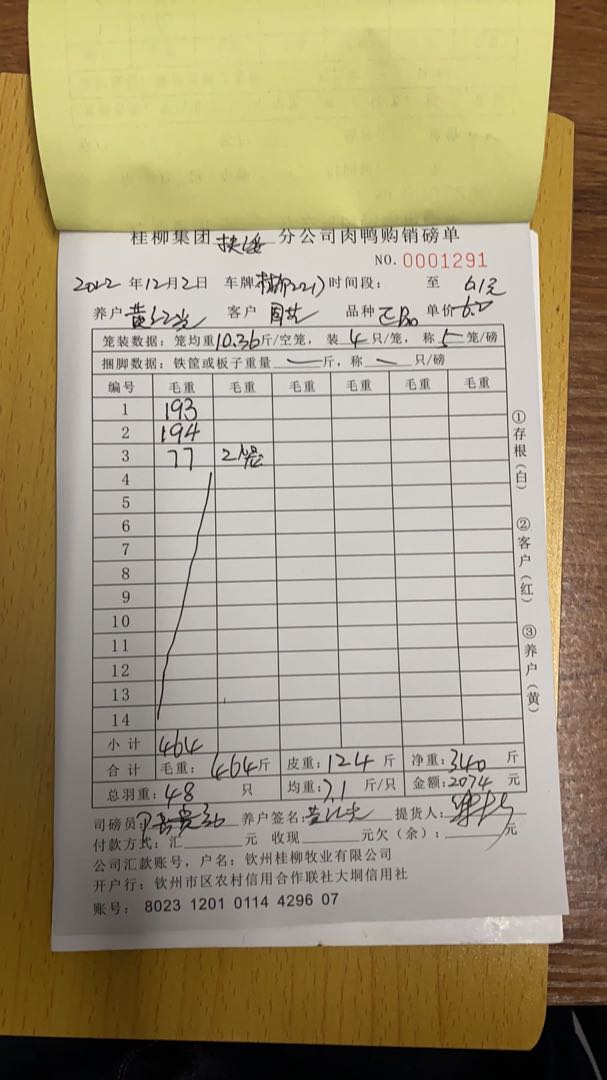 桂柳集团 扶绥 分公司肉鸭购销磅单
NO. 0001291
2022 年12月2日 车牌 时间段: 至 6.1元
养户 客户 品种 单价
笼装数据: 笼均重10.36斤/空笼, 装 4 只/笼, 称 5 笼/磅
捆脚数据: 铁筐或板子重量 — 斤, 称 — 只/磅
编号 毛重 毛重 毛重 毛重 毛重 毛重
1 193
2 194
3 77 2笼
4
5
6
7
8
9
10
11
12
13
14
小计 464
合计 毛重: 464斤 皮重: 124 斤 净重: 340 斤
总羽重: 48 只 均重: 7.1 斤/只 金额: 2074 元
司磅员: 养户签名: 提货人:
付款方式: 汇 元 收现 元欠(余): 元
公司汇款账号, 户名: 钦州桂柳牧业有限公司
开户行: 钦州市区农村信用合作联社大垌信用社
账号: 8023 1201 0114 4296 07
①存根(白)
②客户(红)
③养户(黄)